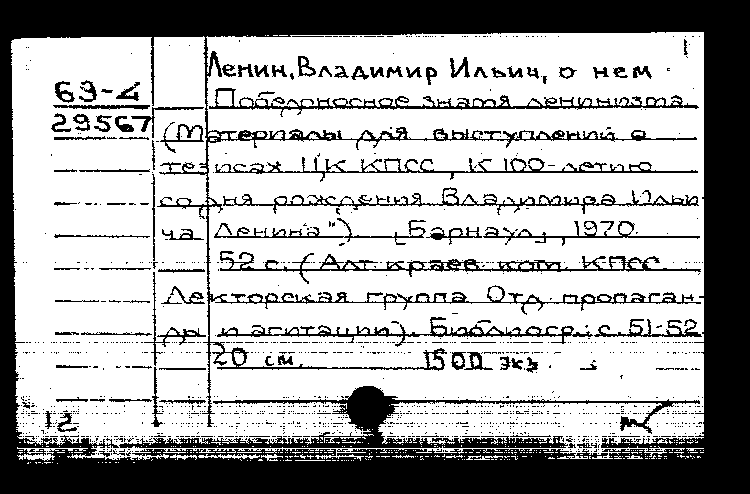 Ленин, Владимир Ильич, о нем
69-4
Победоносное знамя ленинизма
29567
(Материалы для выступлений о
тезисах ЦК КПСС, К 100-летию
со дня рождения Владимира Ильи-
ча Ленина") [Барнаул], 1970.
52 с. (Алт. краев. ком. КПСС.
Лекторская группа Отд. пропаган-
ды и агитации). Библиогр.: с. 51-52
20 см. 1500 экз.
12